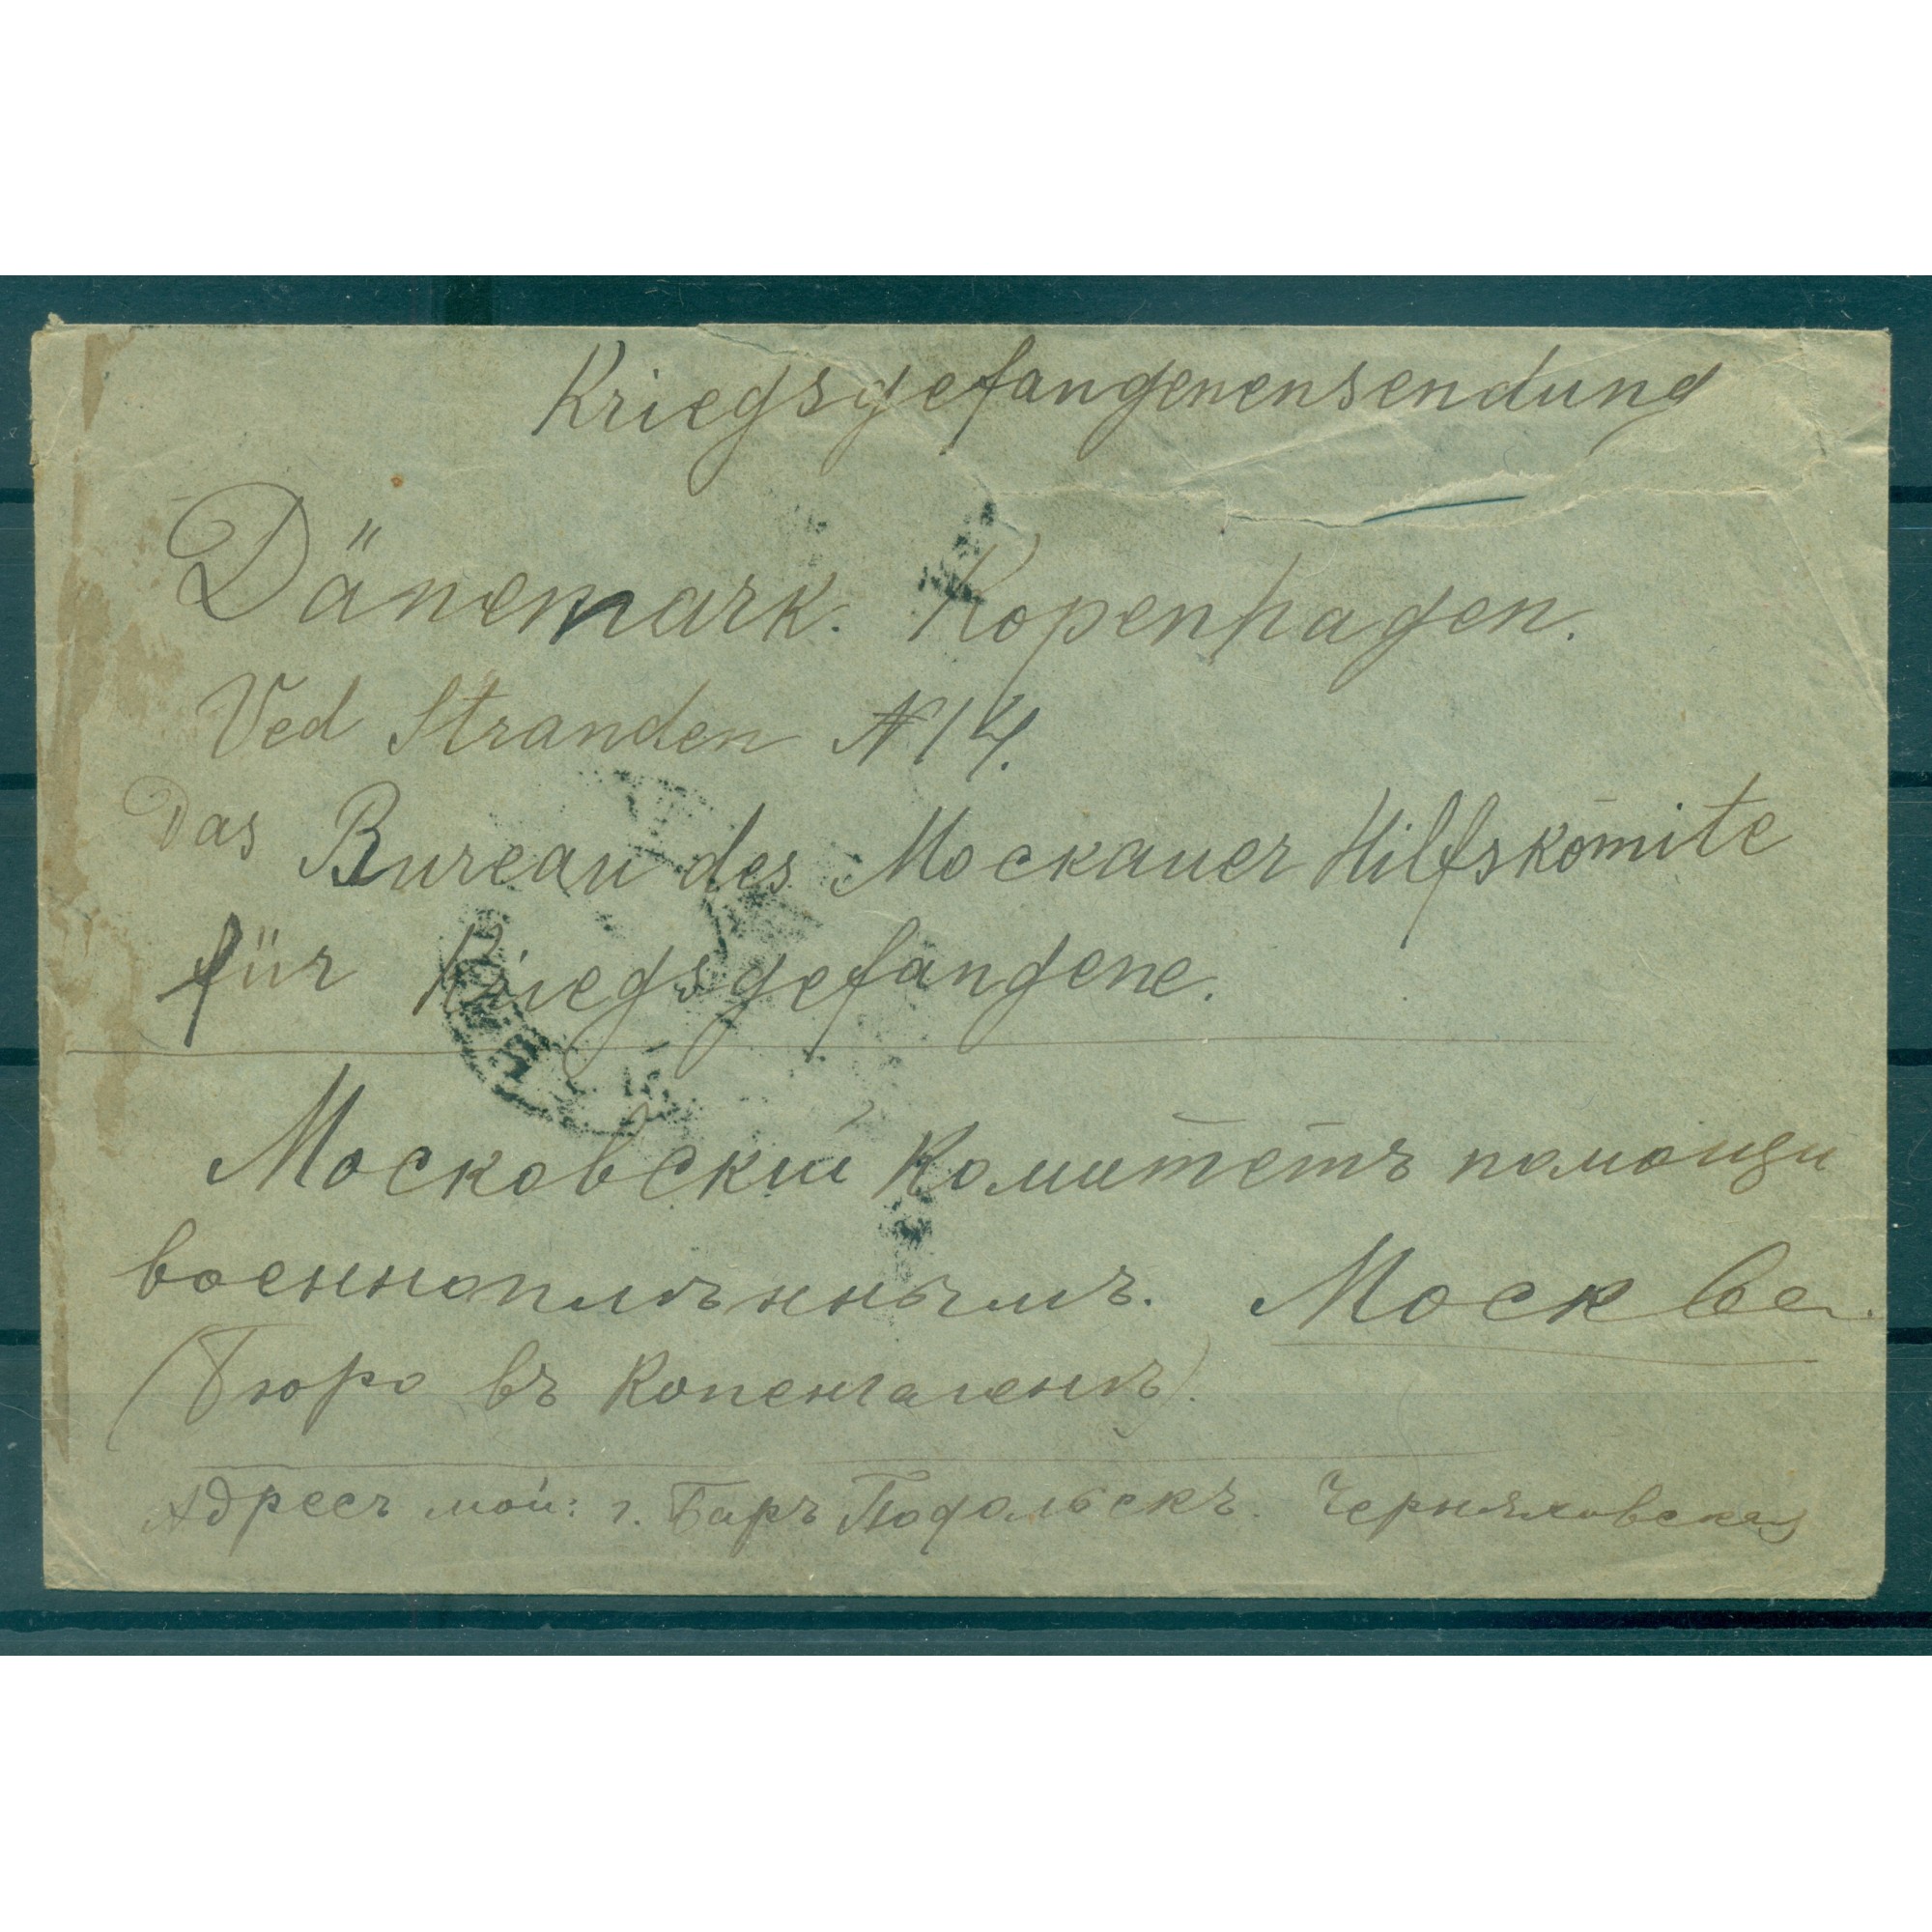 Kriegsgefangenensendung
Dänemark. Kopenhagen.
Ved Stranden N 14.
Das Bureau des Mockauer Hilfskomite
für Kriegsgefangene.
Московскій Комитетъ помощи
военноплѣннымъ. Москва.
(Бюро въ Копенгагенѣ).
Адресъ мой: г. Баръ Подольскъ. Черняховская